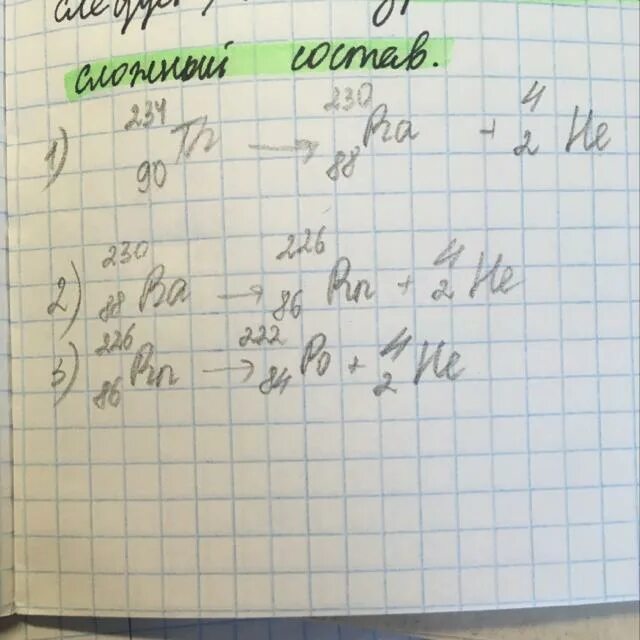 следует,
сложный состав.
1) ²³⁴₉₀Th → ²³⁰₈₈Ra + ⁴₂He
2) ²³⁰₈₈Ra → ²²⁶₈₆Rn + ⁴₂He
3) ²²⁶₈₆Rn → ²²²₈₄Po + ⁴₂He